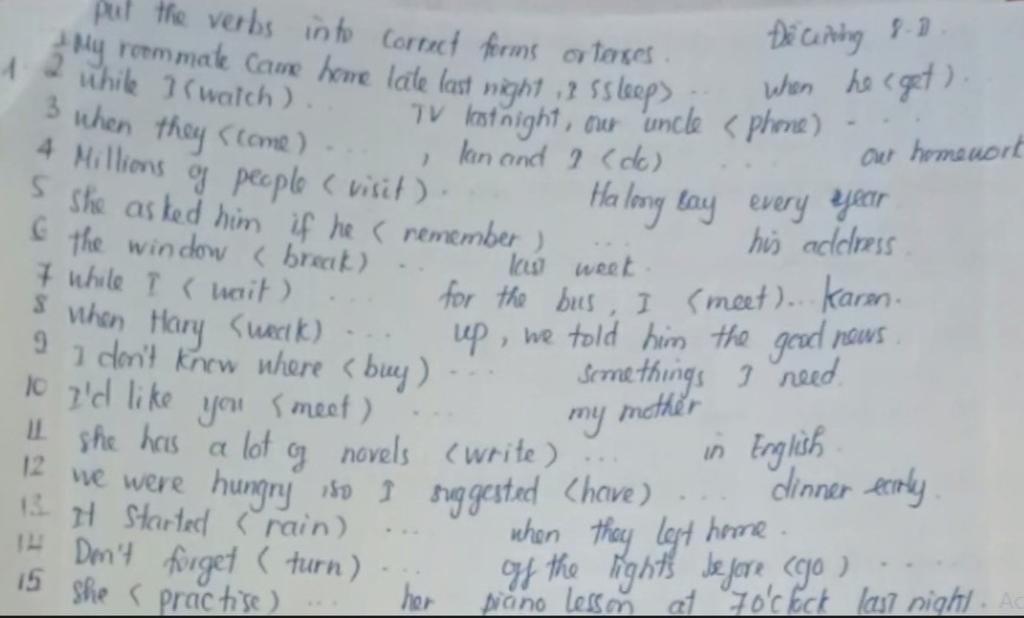 put the verbs into correct forms or tenses. Đề cương 8.D.
1 My roommate came home late last night, I <sleep> .. when he <get>.
2 while I (watch) .. TV last night, our uncle <phone> - ...
3 when they <come) ... , Lan and I <do) ... our homework
4 Millions of people <visit). . Ha long bay every year
5 She asked him if he < remember ) ... his address.
6 the window < break) .. last week.
7 while I < wait ) .... for the bus, I <meet)... Karen.
8 when Mary <weak) .... up, we told him the good news.
9 I don't know where <buy) ... somethings I need.
10 I'd like you <meet ) ... my mother
11 she has a lot of novels <write) ... in English.
12 we were hungry, so I suggested <have) .... dinner early.
13 It Started < rain) ... when they left home.
14 Don't forget < turn) ... off the lights before <go ) .....
15 she < practise) ... her piano lesson at 7o'clock last night.